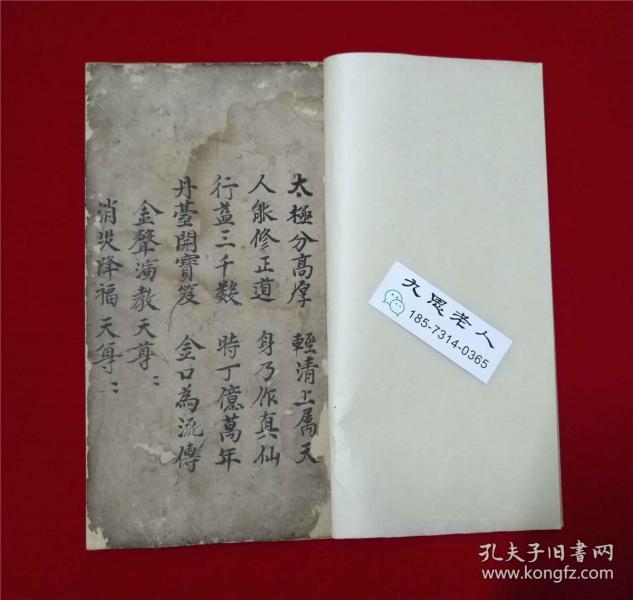 太極分高厚 輕清上属天
人能修正道 身乃作真仙
行益三千數 時丁億萬年
丹臺開寶笈 金口為流傳
金聲演教天尊：
消災降福天尊：
九思老人
185-7314-0365
孔夫子旧書网
www.kongfz.com